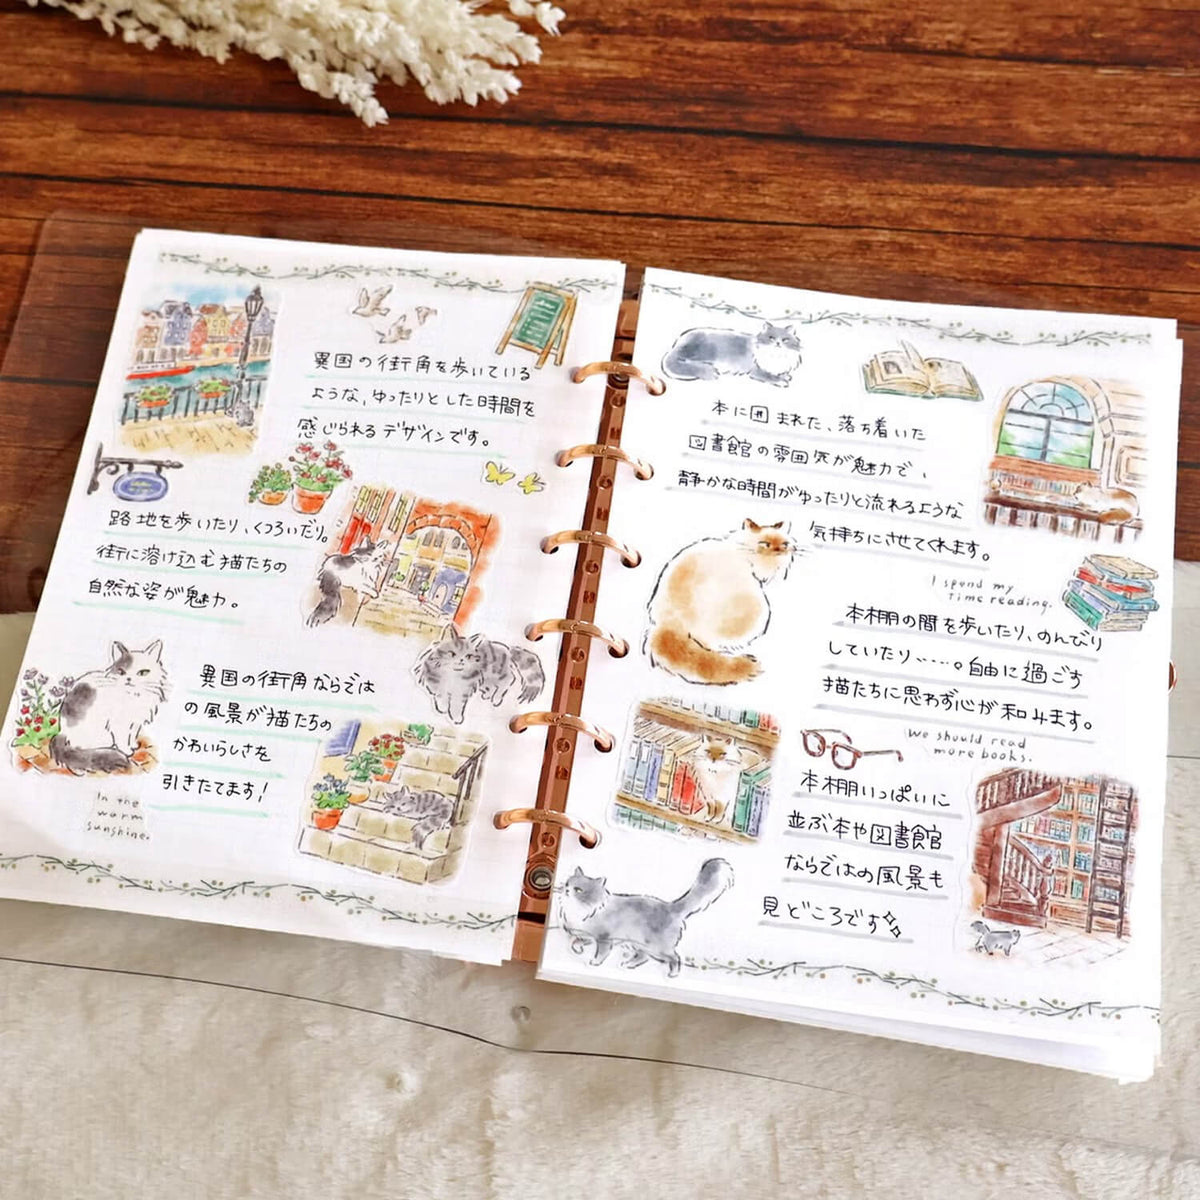 異国の街角を歩いている
ような、ゆったりとした時間を
感じられるデザインです。
路地を歩いたり、くつろいだり。
街に溶け込む猫たちの
自然な姿が魅力。
異国の街角ならでは
の風景が猫たちの
かわいらしさを
引きたてます!
In the
warm
sunshine.
本に囲まれた、落ち着いた
図書館の雰囲気が魅力で、
静かな時間がゆったりと流れるような
気持ちにさせてくれます。
I spend my
time reading.
本棚の間を歩いたり、のんびり
していたり……。自由に過ごす
猫たちに思わず心が和みます。
We should read
more books.
本棚いっぱいに
並ぶ本や図書館
ならではの風景も
見どころです